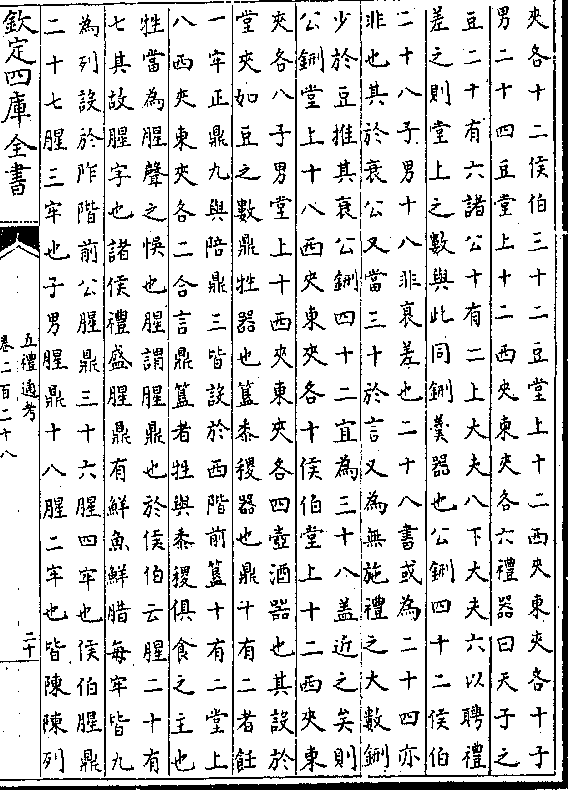 夾各十二侯伯三十二豆堂上十二西夾東夾各十子
男二十四豆堂上十二西夾東夾各六禮器曰天子之
豆二十有六諸公十有二上大夫八下大夫六以聘禮
差之則堂上之數與此同鉶羮器也公鉶四十二侯伯
二十八子男十八非衰差也二十八書或為二十四亦
非也其於衰公又當三十於言又為無施禮之大數鉶
少於豆推其衰公鉶四十二宜為三十八盖近之矣則
公鉶堂上十八西夾東夾各十侯伯堂上十二西夾東
夾各八子男堂上十西夾東夾各四壺酒器也其設於
堂夾如豆之數鼎牲器也簋黍稷器也鼎十有二者飪
一牢正鼎九與陪鼎三皆設於西階前簋十有二堂上
八西夾東夾各二合言鼎簋者牲與黍稷俱食之主也
牲當為腥聲之悞也腥謂腥鼎也於侯伯云腥二十有
七其故腥字也諸侯禮盛腥鼎有鮮魚鮮腊每牢皆九
為列設於阼階前公腥鼎三十六腥四牢也侯伯腥鼎
二十七腥三牢也子男腥鼎十八腥二牢也皆陳陳列
欽定四庫全書
五禮通考
卷二百二十八
二十